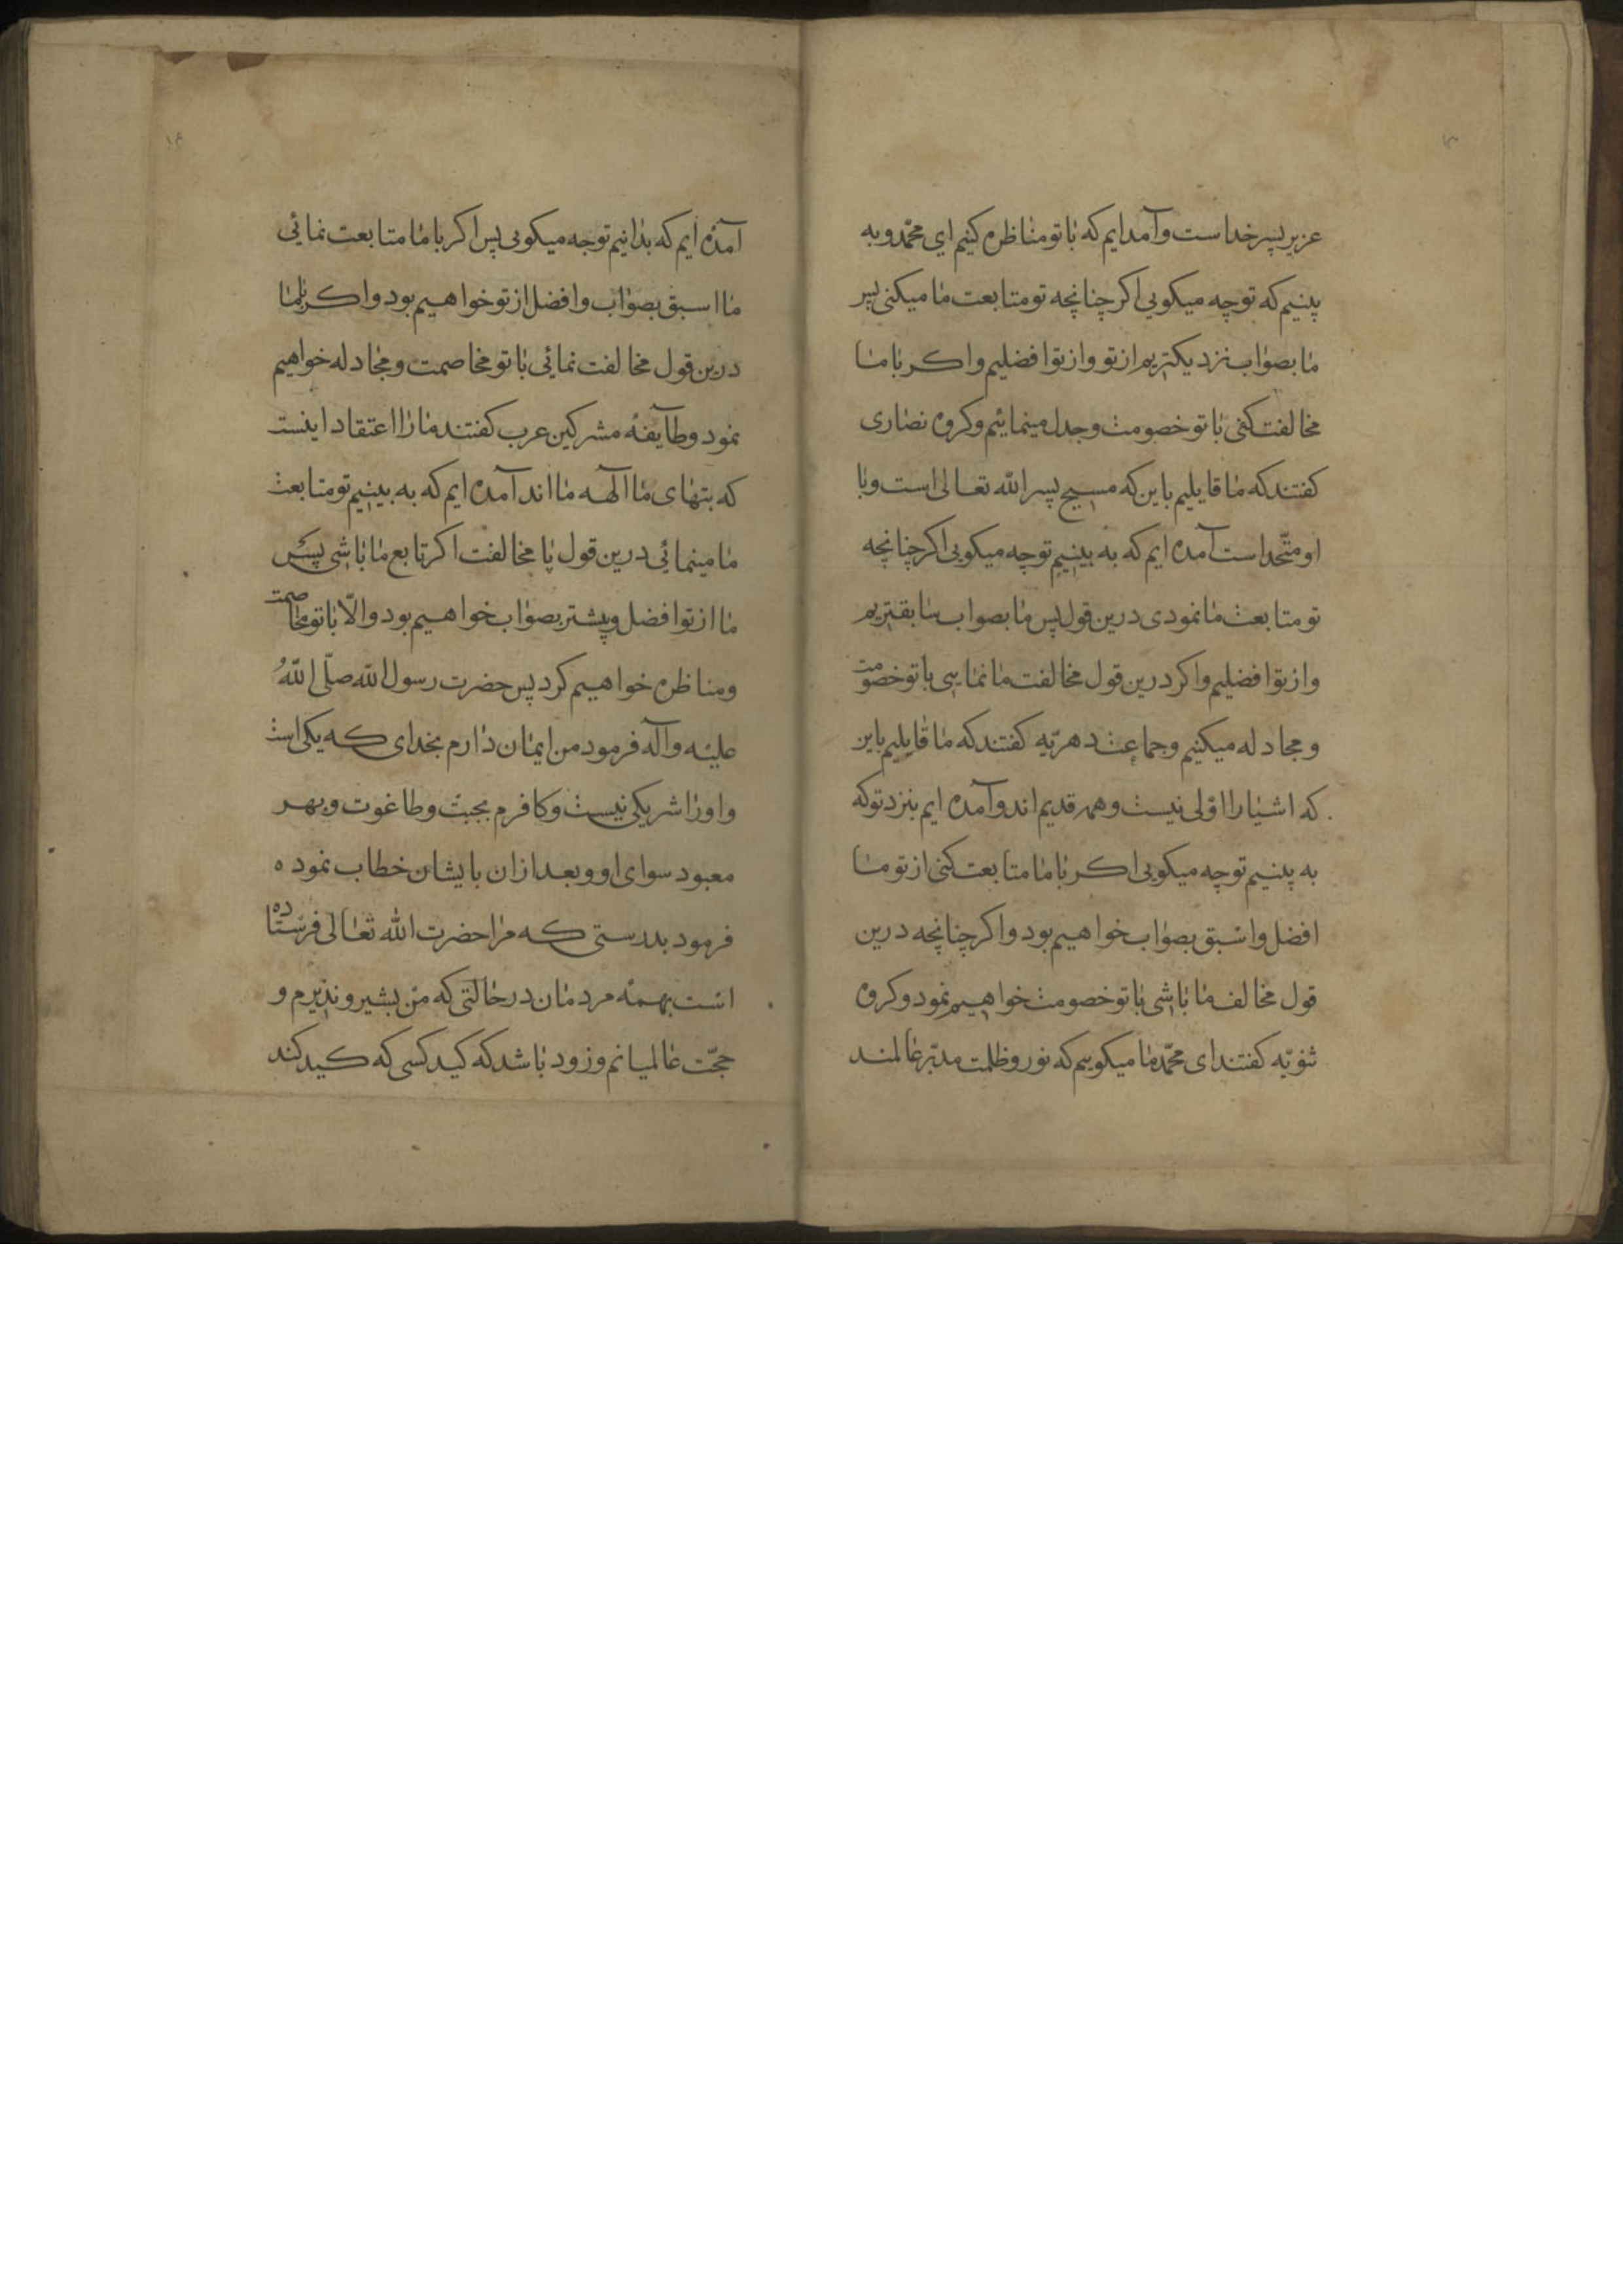 عزیر پسر خداست و آمدایم که با تو مناظره کنیم ای محمّد و به
بینیم که تو چه میکویی اکر چنانچه تو متابعت ما میکنی پس
ما بصواب نزدیکتریم از تو و از تو افضلیم و اکر با ما
مخالفت کنی با تو خصومت و جدل مینمائیم و کروه نصاری
کفتند که ما قایلیم باین که مسیح پسر الله تعالی است و با
او متّحد است آمده ایم که به بینیم تو چه میکویی اکر چنانچه
تو متابعت ما نمودی درین قول پس ما بصواب سابقتریم
و از تو افضلیم و اکر درین قول مخالفت ما نمایی با تو خصومت
و مجادله میکنیم و جماعت دهریّه کفتند که ما قایلیم باین
که اشیا را اوّلی نیست و همه قدیم اند و آمده ایم بنزد تو که
به بینیم تو چه میکویی اکر با ما متابعت کنی از تو ما
افضل و اسبق بصواب خواهیم بود و اکر چنانچه درین
قول مخالف ما باشی با تو خصومت خواهیم نمود و کروه
ثنویّه کفتند ای محمّد ما میکوییم که نور و ظلمت مدبّر عالمند
آمده ایم که بدانیم تو چه میکویی پس اکر با ما متابعت نمائی
ما اسبق بصواب و افضل از تو خواهیم بود و اکر با ما
درین قول مخالفت نمائی با تو مخاصمت و مجادله خواهیم
نمود و طایفهٔ مشرکین عرب کفتند ما را اعتقاد اینست
که بتهای ما آلهه ما اند آمده ایم که به بینیم تو متابعت
ما مینمائی درین قول یا مخالفت اکر تابع ما باشی پس
ما از تو افضل و پیشتر بصواب خواهیم بود و الّا با تو مخاصمت
و مناظره خواهیم کرد پس حضرت رسول الله صلّی اللّهُ
علیه و آله فرمود من ایمان دارم بخدای که یکی است
و او را شریکی نیست و کافرم بجبت و طاغوت و بهر
معبود سوای او و بعد از ان بایشان خطاب نموده
فرمود بدرستی که مرا حضرت الله تعالی فرستاده
است بهمه مردمان در حالتی که من بشیر و نذیرم و
حجّت عالمیانم و زود باشد که کید کسی که کید کند